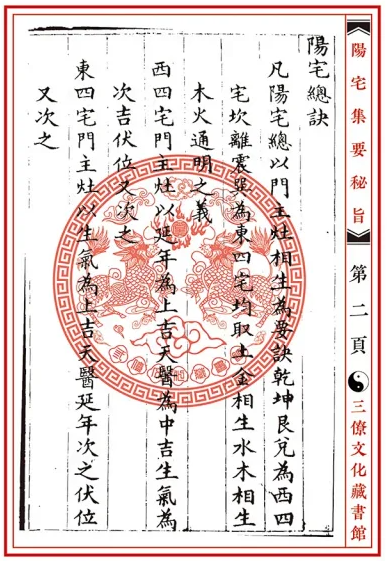 陽宅集要秘旨
第二頁
三僚文化藏書館
陽宅總訣
凡陽宅總以門主灶相生為要訣乾坤艮兌為西四
宅坎離震巽為東四宅均取土金相生水木相生
木火通明之義
西四宅門主灶以延年為上吉天醫為中吉生氣為
次吉伏位又次之
東四宅門主灶以生氣為上吉天醫延年次之伏位
又次之